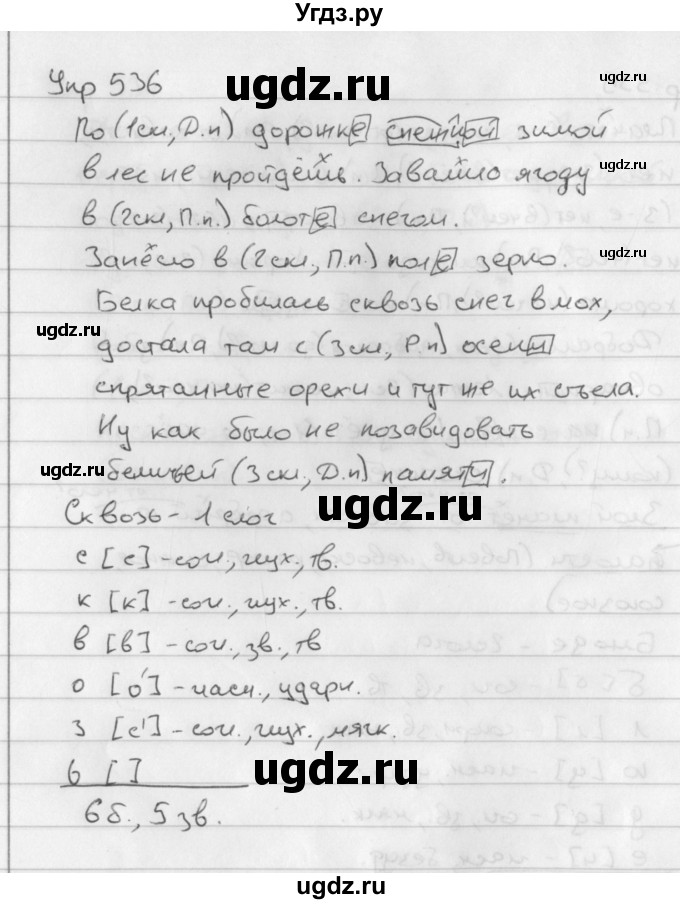 Угдз.ру
Упр 536
По (1скл, Д.п) дорожке снежной зимой
в лес не пройдёшь. Завалило ягоду
в (2скл, П.п.) болоте снегом.
Занесло в (2скл., П.п.) поле зерно.
Белка пробилась сквозь снег в мох,
достала там с (3скл., Р.п) осени
спрятанные орехи и тут же их съела.
Ну как было не позавидовать
беличьей (3скл, Д.п) памяти.
Сквозь - 1 слог
с [с] - сог., глух., тв.
к [к] - сог., глух., тв.
в [в] - сог., зв., тв
о [о'] - гласн., ударн.
з [с'] - сог., глух., мягк.
ь [ ]
6б., 5 зв.
ugdz.ru
ugdz.ru
ugdz.ru
ugdz.ru
ugdz.ru
ugdz.ru
ugdz.ru
ugdz.ru
ugdz.ru
ugdz.ru
ugdz.ru
ugdz.ru